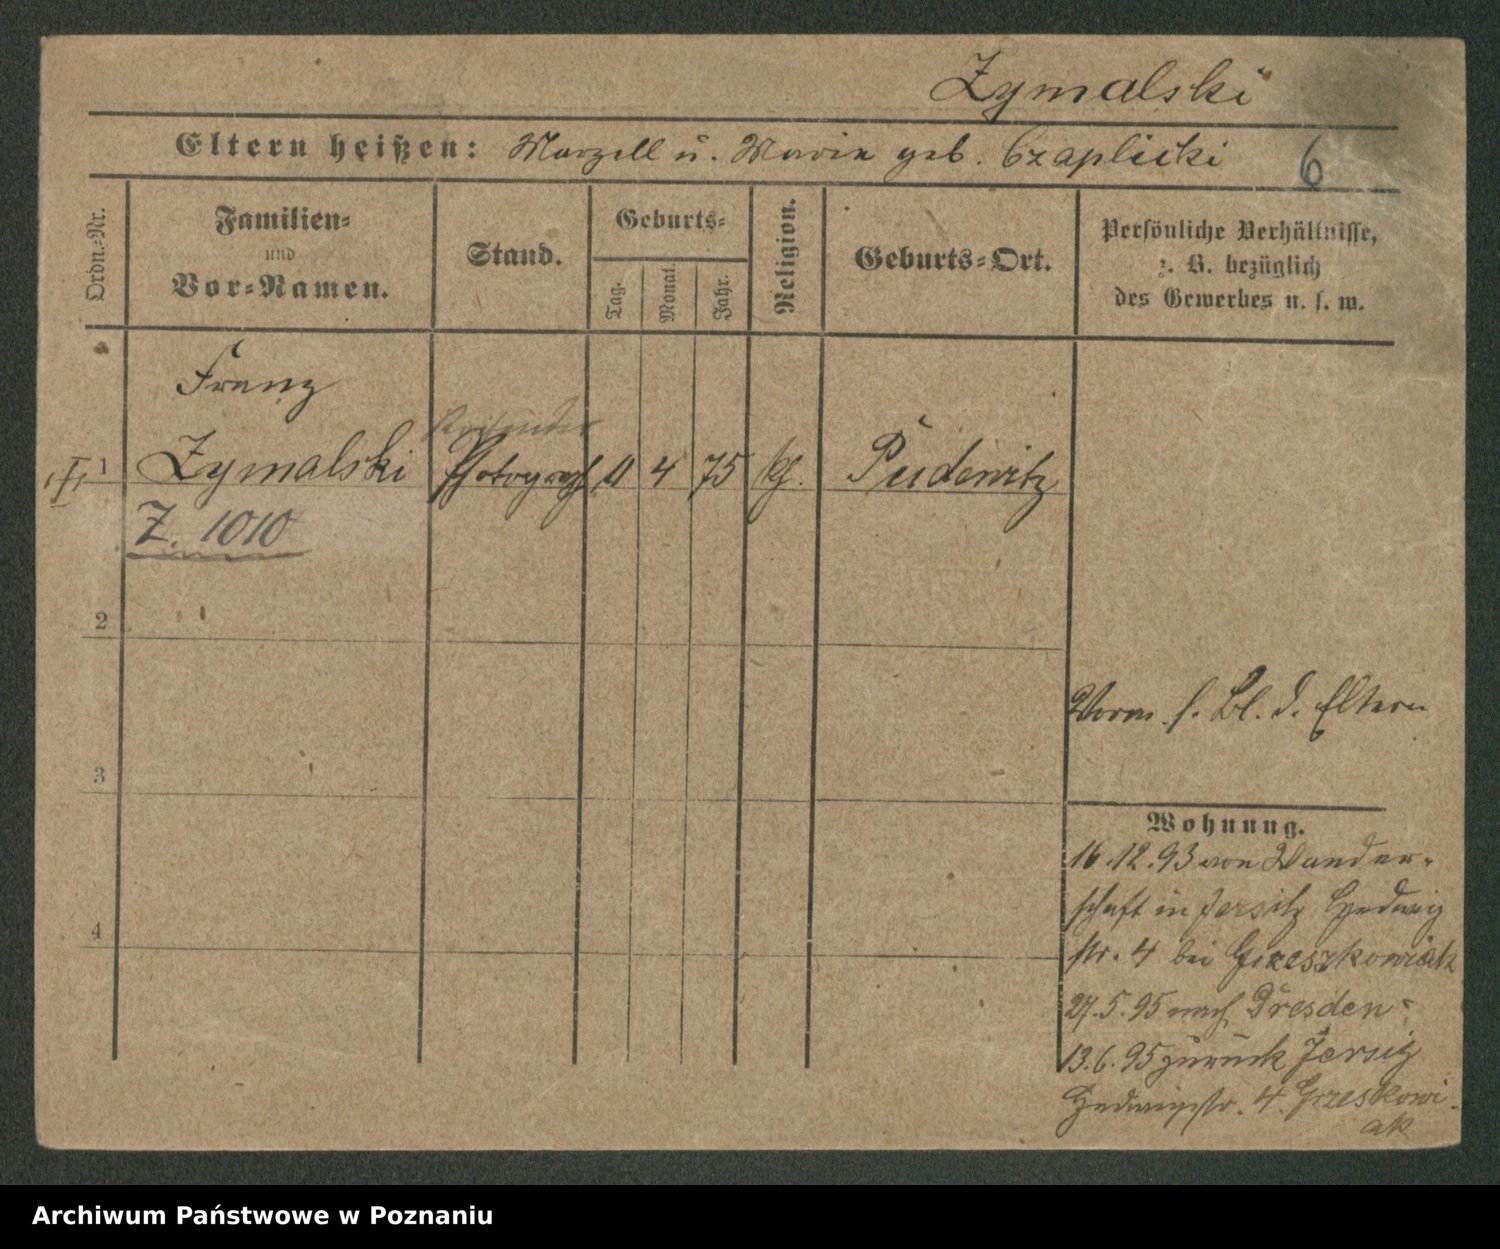 Zymalski
Eltern heißen: Marzell u. Marie geb. Czaplicki 6
Ordn.-Nr.
Familien-
und
Vor-Namen.
Stand.
Geburts-
Tag.
Monat.
Jahr.
Religion.
Geburts-Ort.
Persönliche Verhältnisse,
z. B. bezüglich
des Gewerbes u. s. w.
Franz
1 Zymalski Photograph 11 4 75 kth. Pudewitz
Z. 1010
2
3
4
Vorm. s. Bl. d. Eltern
Wohnung.
16.12.93 von Wander-
schaft in Jersitz Hedwig
str. 4 bei Grzeszkowiak
27.5.95 nach Dresden
13.6.95 zurück Jersitz
Hedwigstr. 4. Grzeskowi-
ak
Archiwum Państwowe w Poznaniu